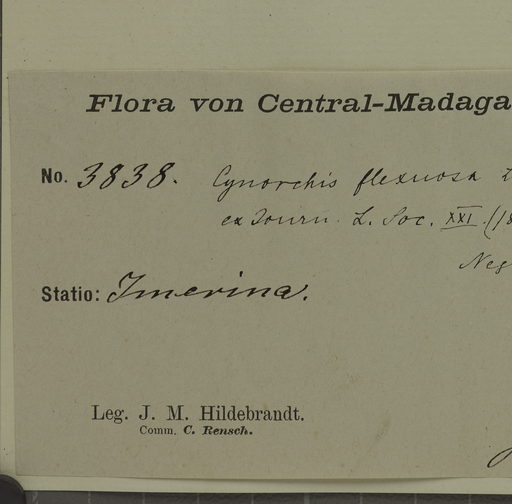 Flora von Central-Madaga
No. 3838. Cynorchis flexuosa
ex Journ. L. Soc. XXI. (18
Statio: Imerina.
Leg. J. M. Hildebrandt.
Comm. C. Rensch.